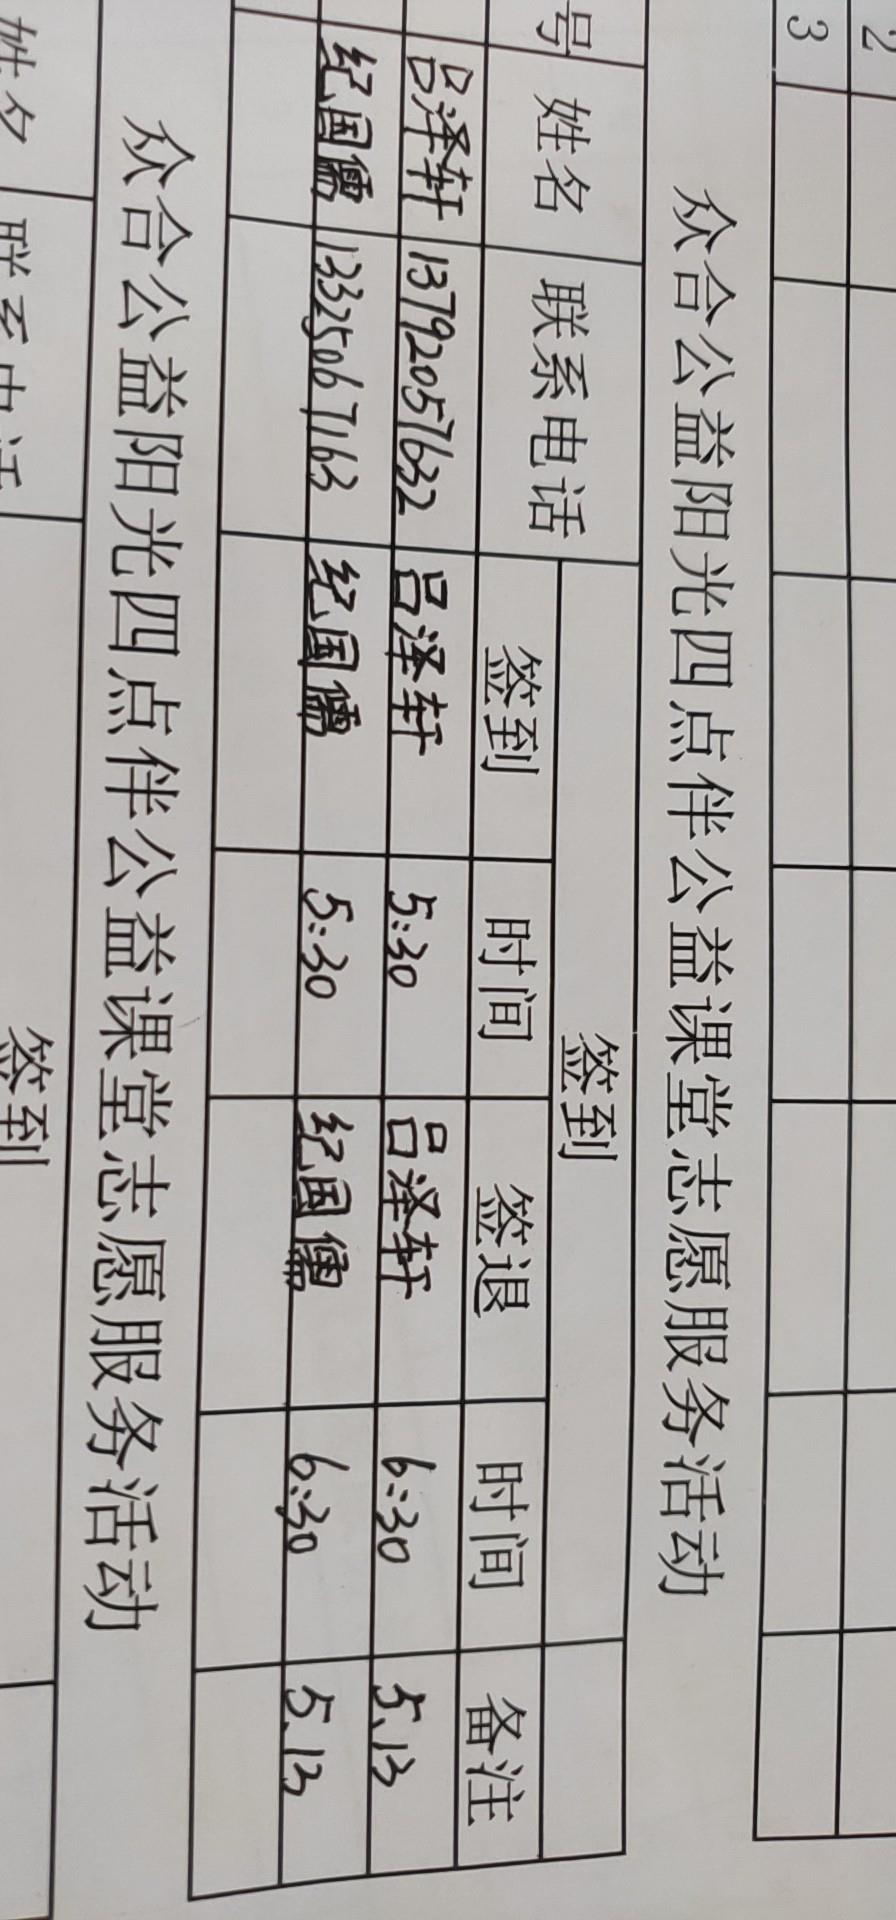 2
3
众合公益阳光四点伴公益课堂志愿服务活动
签到
号 姓名 联系电话 签到 时间 签退 时间 备注
吕泽轩 13792057632 吕泽轩 5:30 吕泽轩 6:30 5.13
纪国儒 13325067163 纪国儒 5:30 纪国儒 6:30 5.13
众合公益阳光四点伴公益课堂志愿服务活动
签到
姓名 联系电话